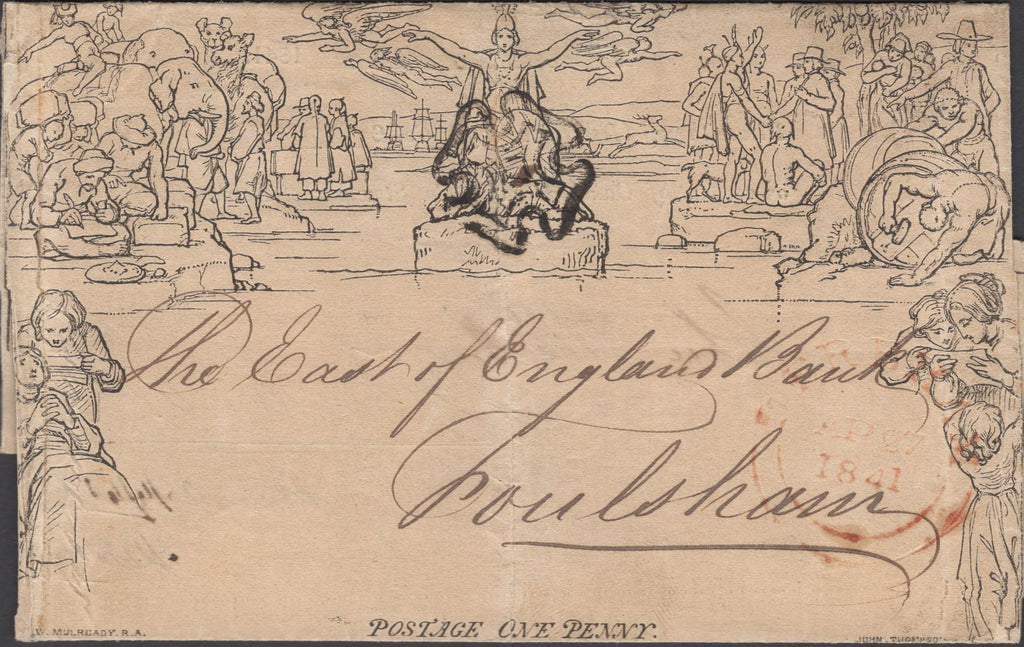 The East of England Bank
Foulsham
AP 27
1841
W. MULREADY. R.A.
POSTAGE ONE PENNY.
JOHN THOMPSON